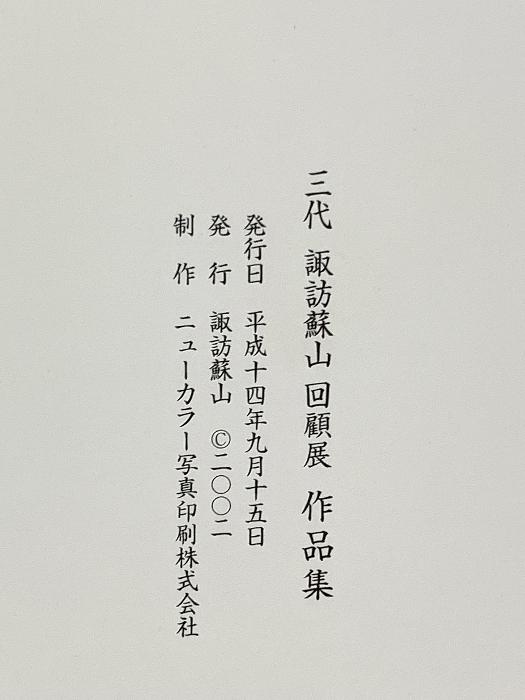 三代 諏訪蘇山 回顧展 作品集
発行日 平成十四年九月十五日
発行 諏訪蘇山 ©二〇〇二
制作 ニューカラー写真印刷株式会社